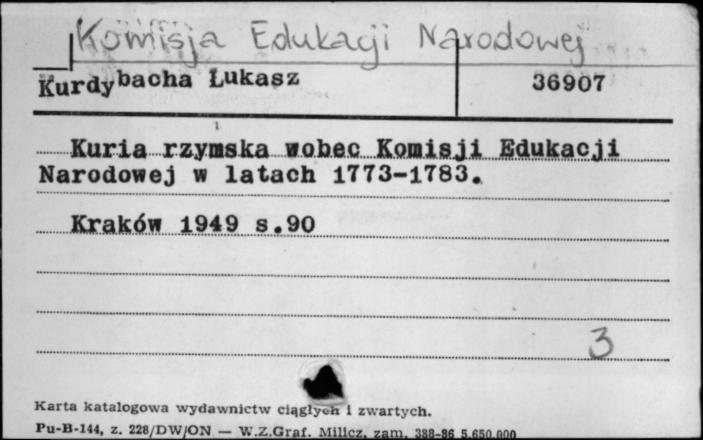 Komisja Edukacji Narodowej
Kurdybacha Łukasz 36907
Kuria rzymska wobec Komisji Edukacji
Narodowej w latach 1773-1783.
Kraków 1949 s.90
3
Karta katalogowa wydawnictw ciągłych i zwartych.
Pu-B-144, z. 228/DW/ON — W.Z.Graf. Milicz, zam. 388-86 5.650.000